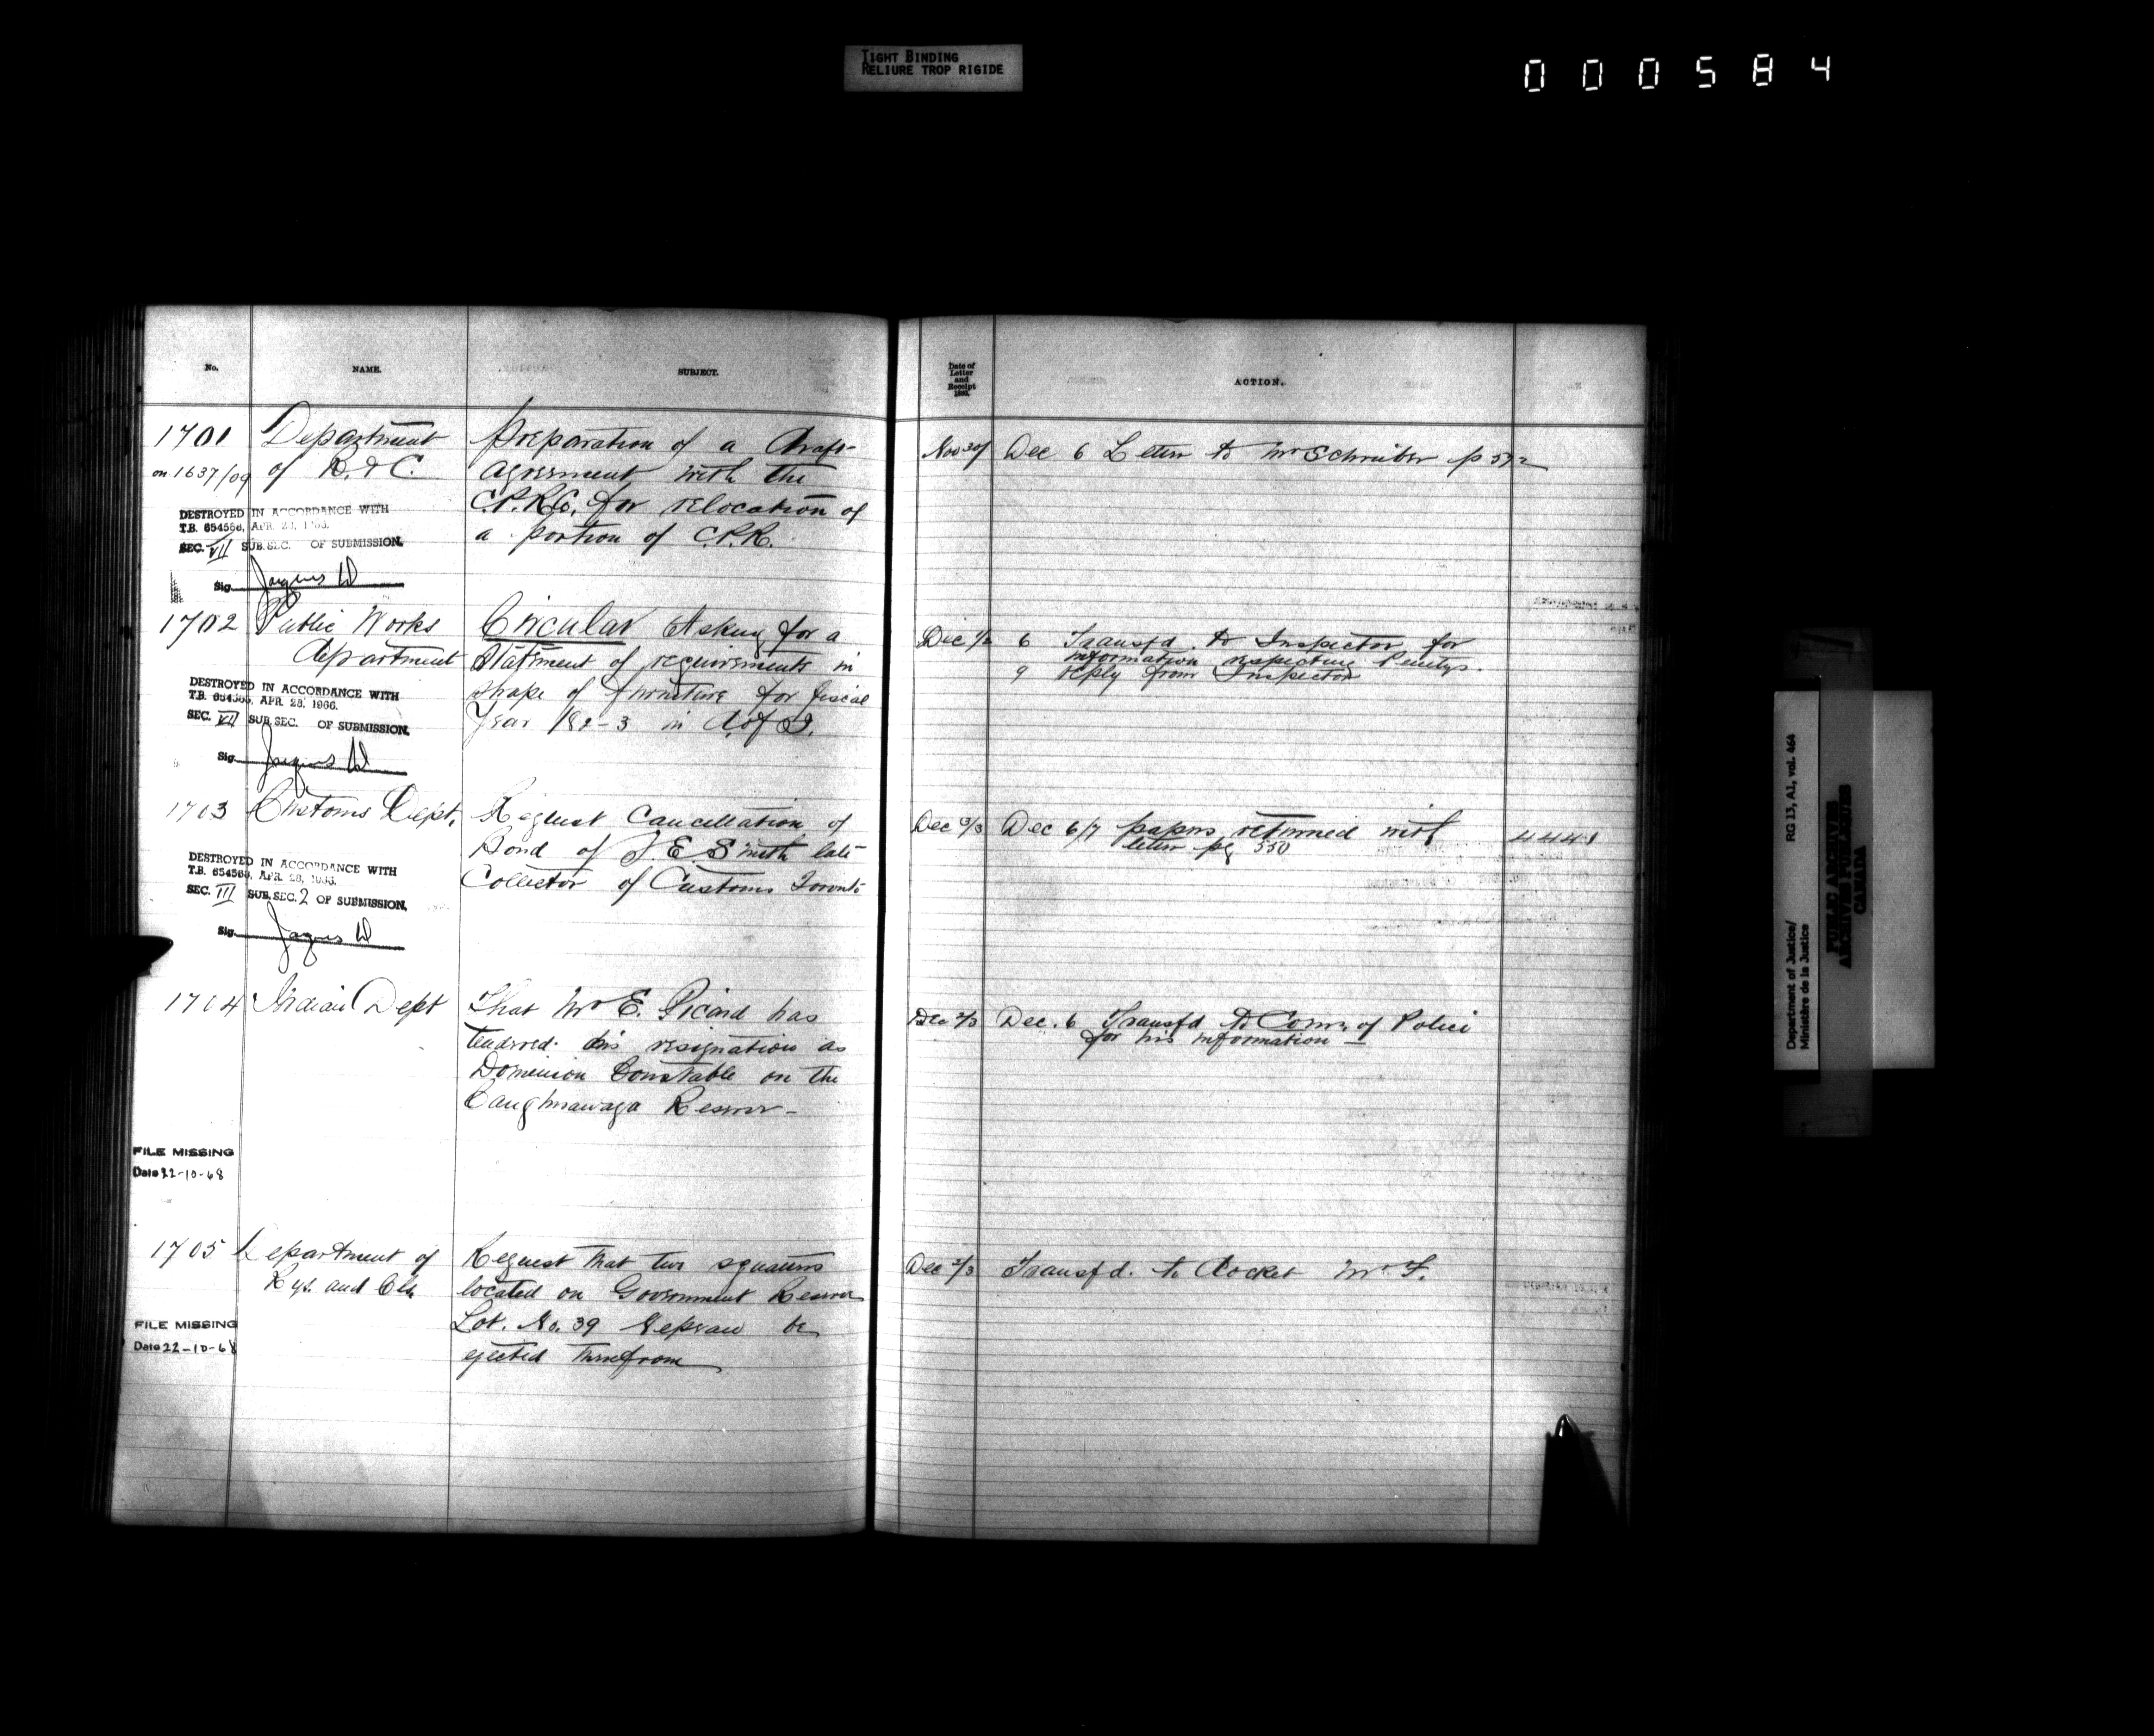 TIGHT BINDING
RELIURE TROP RIGIDE
000584
No.
NAME.
SUBJECT.
1701
on 1637/09
Department
of R. & C.
Preparation of a draft
agreement with the
C.P.R.Co. for relocation of
a portion of C.P.R.
DESTROYED IN ACCORDANCE WITH
T.B. 654566, APR. 28, 1966.
SEC. VII SUB.SEC. OF SUBMISSION.
Sig. Jaques W
1702
Public Works
Department
Circular Asking for a
Statement of requirements in
shape of furniture for fiscal
Year 189-3 in D. of J.
DESTROYED IN ACCORDANCE WITH
T.B. 654566, APR. 28, 1966.
SEC. VII SUB.SEC. OF SUBMISSION.
Sig. Jaques W
1703
Customs Dept.
Request Cancellation of
Bond of J. E. Smith late
Collector of Customs Toronto
DESTROYED IN ACCORDANCE WITH
T.B. 654566, APR. 28, 1966.
SEC. III SUB.SEC. 2 OF SUBMISSION.
Sig. Jaques W
1704
Indian Dept
That Mr E. Picard has
tendered his resignation as
Dominion Constable on the
Caughnawaga Reserve -
FILE MISSING
Date 22-10-68
1705
Department of
Rys. and Cls.
Request that two squatters
located on Government Reserve
Lot. No. 39 Nepean be
ejected therefrom
FILE MISSING
Date 22-10-68
Date of
Letter
and
Receipt
189
ACTION.
Nov 30/
Dec 6 Letter to Mr Schreiber p 572
Dec 1/2
6 Transfd. to Inspector for
information respecting Penitys.
9 reply from Inspector
Dec 3/3
Dec 6/7 papers returned with
letter pg 550
4441
Dec 2/3
Dec. 6 Transfd to Comr. of Police
for his information -
Dec 2/3
Transfd. to Docket Mr. F.
Department of Justice/ RG 13, A1, vol. 464
Ministère de la Justice
PUBLIC ARCHIVES
ARCHIVES PUBLIQUES
CANADA